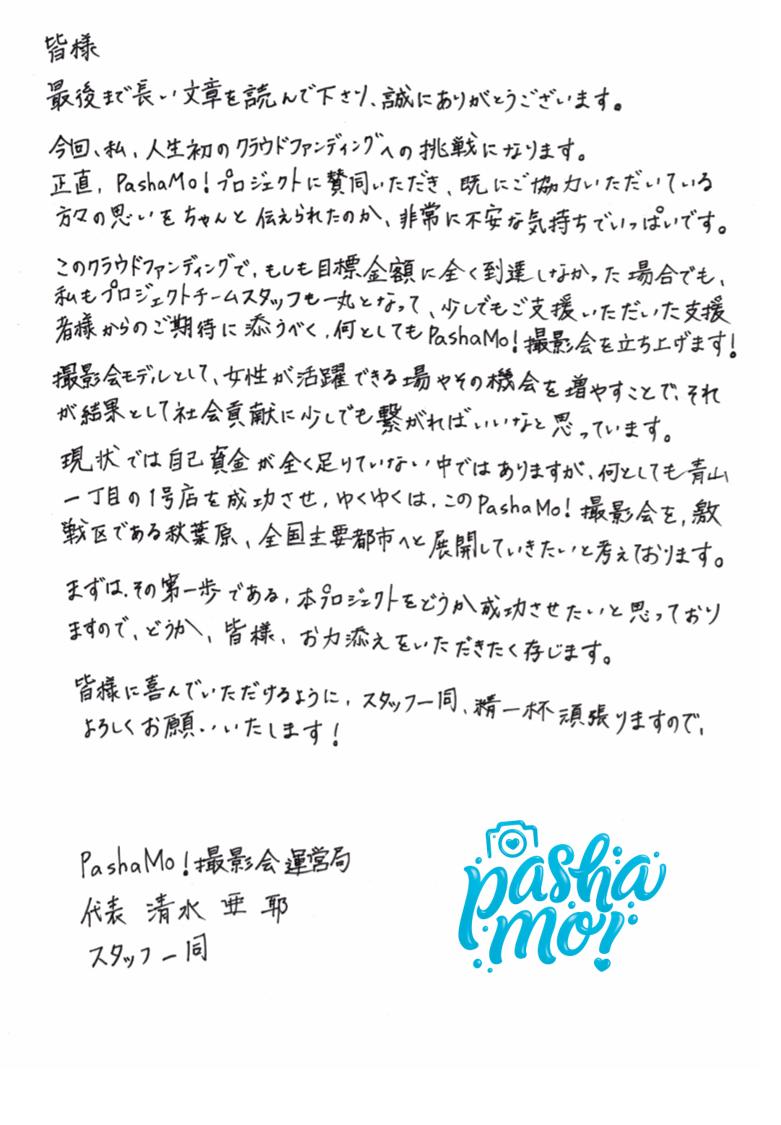 皆様
最後まで長い文章を読んで下さり、誠にありがとうございます。
今回、私、人生初のクラウドファンディングへの挑戦になります。
正直、PashaMo!プロジェクトに賛同いただき、既にご協力いただいている
方々の思いをちゃんと伝えられたのか、非常に不安な気持ちでいっぱいです。
このクラウドファンディングで、もしも目標金額に全く到達しなかった場合でも、
私もプロジェクトチームスタッフも一丸となって、少しでもご支援いただいた支援
者様からのご期待に添うべく、何としてもPashaMo!撮影会を立ち上げます!
撮影会モデルとして、女性が活躍できる場やその機会を増やすことで、それ
が結果として社会貢献に少しでも繋がればいいなと思っています。
現状では自己資金が全く足りていない中ではありますが、何としても青山
一丁目の1号店を成功させ、ゆくゆくは、このPashaMo!撮影会を、激
戦区である秋葉原、全国主要都市へと展開していきたいと考えております。
まずは、その第一歩である、本プロジェクトをどうか成功させたいと思っており
ますので、どうか、皆様、お力添えをいただきたく存じます。
皆様に喜んでいただけるように、スタッフ一同、精一杯頑張りますので、
よろしくお願いいたします!
PashaMo!撮影会運営局
代表 清水 亜耶
スタッフ一同
pasha
mo!